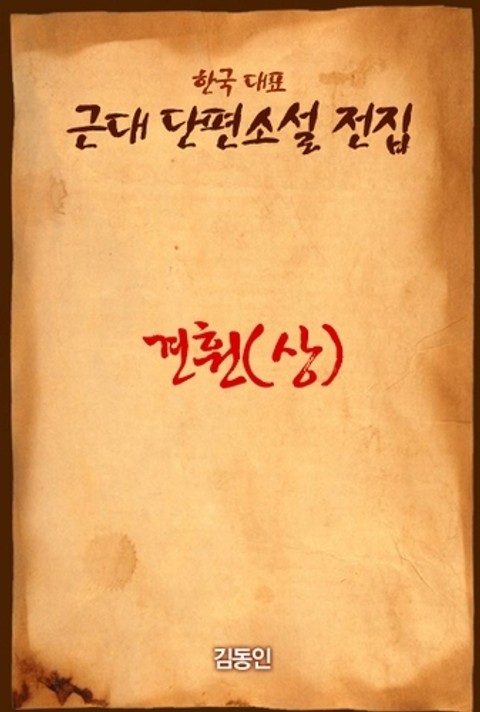 한국 대표
근대 단편소설 전집
견훤(상)
김동인